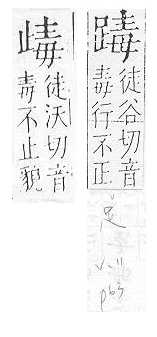 徒谷切音
毒行不正
足
p63
徒沃切音
毒不止貌